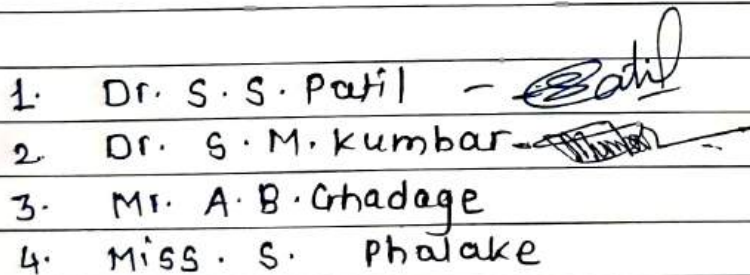 1. Dr. S. S. Patil - Patil
2. Dr. S. M. Kumbar -
3. Mr. A. B. Ghadage
4. Miss. S. Phalake